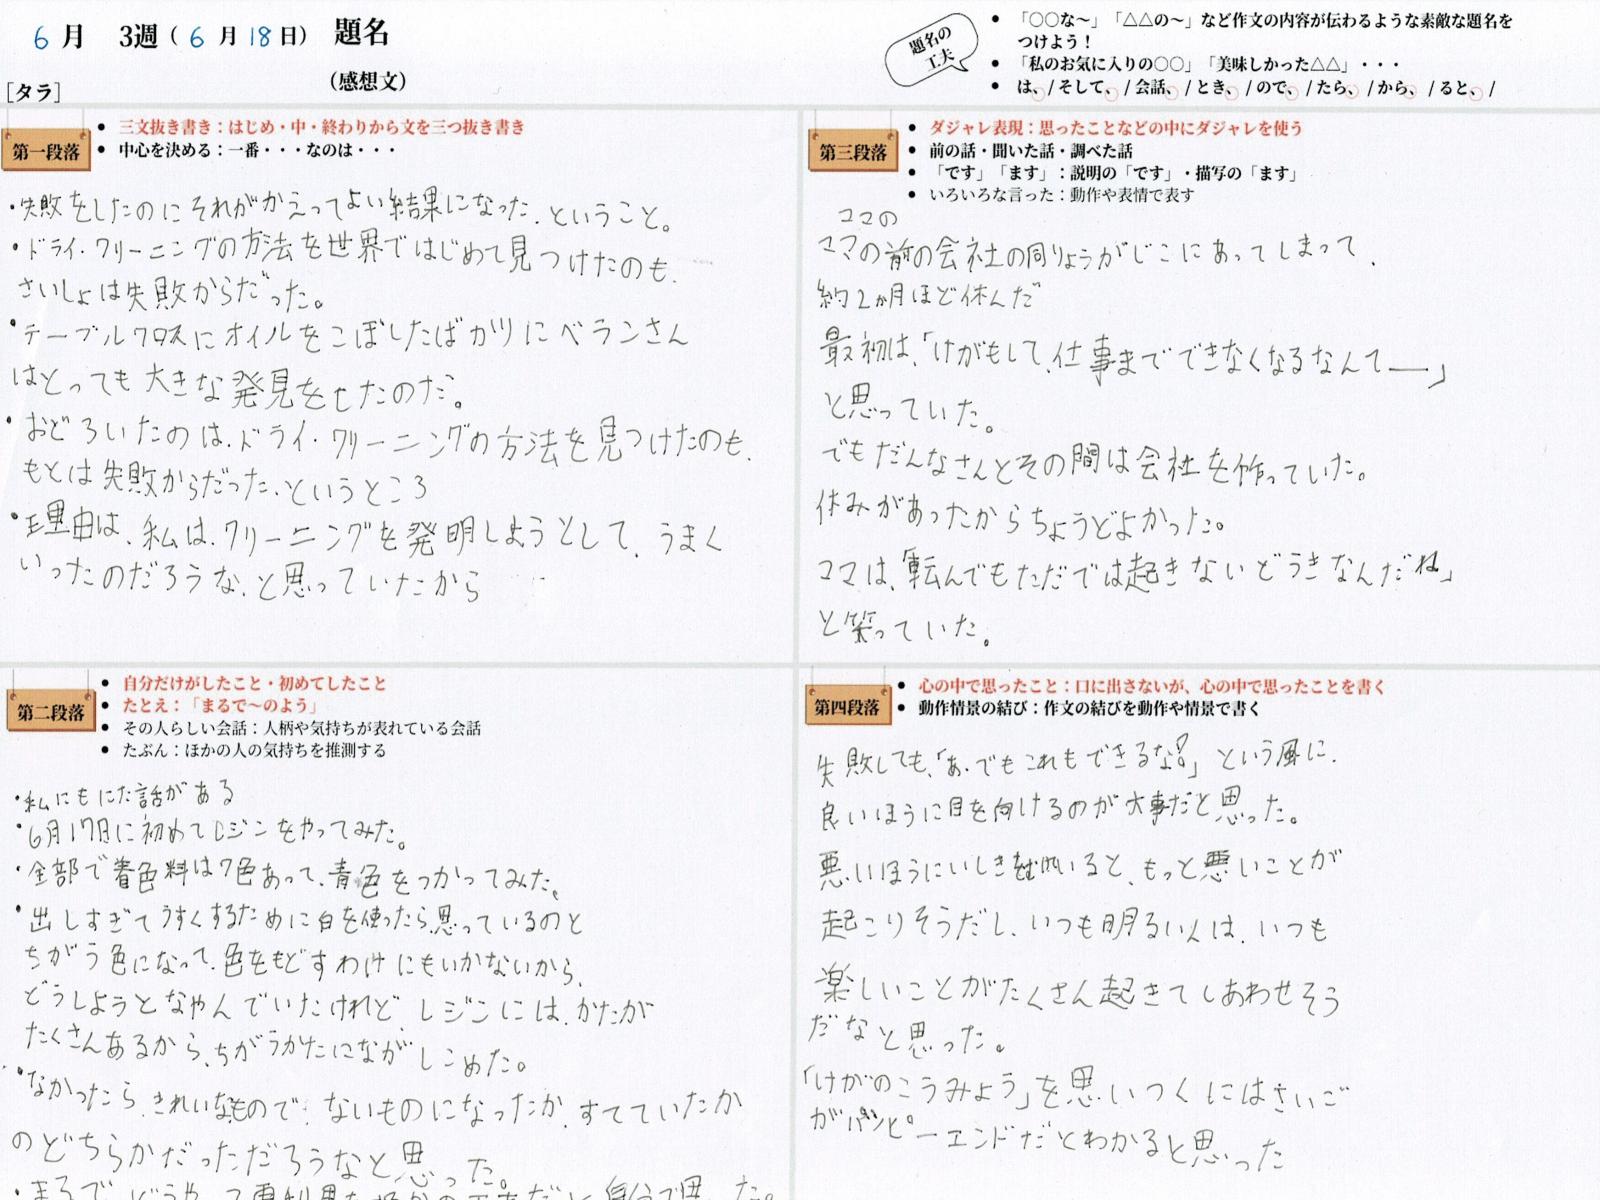 6月 3週(6月18日) 題名
(感想文)
[タラ]
題名の
工夫
● 「○○な〜」「△△の〜」など作文の内容が伝わるような素敵な題名を
つけよう！
● 「私のお気に入りの○○」「美味しかった△△」・・・
● は、/ そして、/ 会話、/ とき、/ ので、/ たら、/ から、/ ると、/
第一段落
● 三文抜き書き：はじめ・中・終わりから文を三つ抜き書き
● 中心を決める：一番・・・なのは・・・
・失敗をしたのにそれがかえってよい結果になった、ということ。
・ドライ・クリーニングの方法を世界ではじめて見つけたのも、
さいしょは失敗からだった。
・テーブルクロスにオイルをこぼしたばかりにベランさん
はとっても大きな発見をしたのだ。
・おどろいたのは、ドライ・クリーニングの方法を見つけたのも、
もとは失敗からだった、というところ
・理由は、私は、クリーニングを発明しようとして、うまく
いったのだろうな、と思っていたから
第二段落
● 自分だけがしたこと・初めてしたこと
● たとえ：「まるで〜のよう」
● その人らしい会話：人柄や気持ちが表れている会話
● たぶん：ほかの人の気持ちを推測する
・私にもにた話がある
・6月17日に初めてレジンをやってみた。
・全部で着色料は7色あって、青色をつかってみた。
・出しすぎてうすくするために白を使ったら、思っているのと
ちがう色になって、色をもどすわけにもいかないから、
どうしようとなやんでいたけれどレジンには、かたが
たくさんあるから、ちがうかたにながしこめた。
・なかったら、きれいなもので、ないものになったか、すてていたか
のどちらかだっただろうなと思った。
・まるで、
第三段落
● ダジャレ表現：思ったことなどの中にダジャレを使う
● 前の話・聞いた話・調べた話
● 「です」「ます」：説明の「です」・描写の「ます」
● いろいろな言った：動作や表情で表す
ママの
ママの前の会社の同りょうがじこにあってしまって、
約2か月ほど休んだ
最初は、「けがもして、仕事までできなくなるなんて――」
と思っていた。
でもだんなさんとその間は会社を作っていた。
休みがあったからちょうどよかった。
ママは、転んでもただでは起きないどうきなんだね」
と笑っていた。
第四段落
● 心の中で思ったこと：口に出さないが、心の中で思ったことを書く
● 動作情景の結び：作文の結びを動作や情景で書く
失敗しても、「あ、でもこれもできるな？」という風に、
良いほうに目を向けるのが大事だと思った。
悪いほうにいしきをいると、もっと悪いことが
起こりそうだし、いつも明るい人は、いつも
楽しいことがたくさん起きてしあわせそう
だなと思った。
「けがのこうみょう」を思いつくにはさいご
がハッピーエンドだとわかると思った